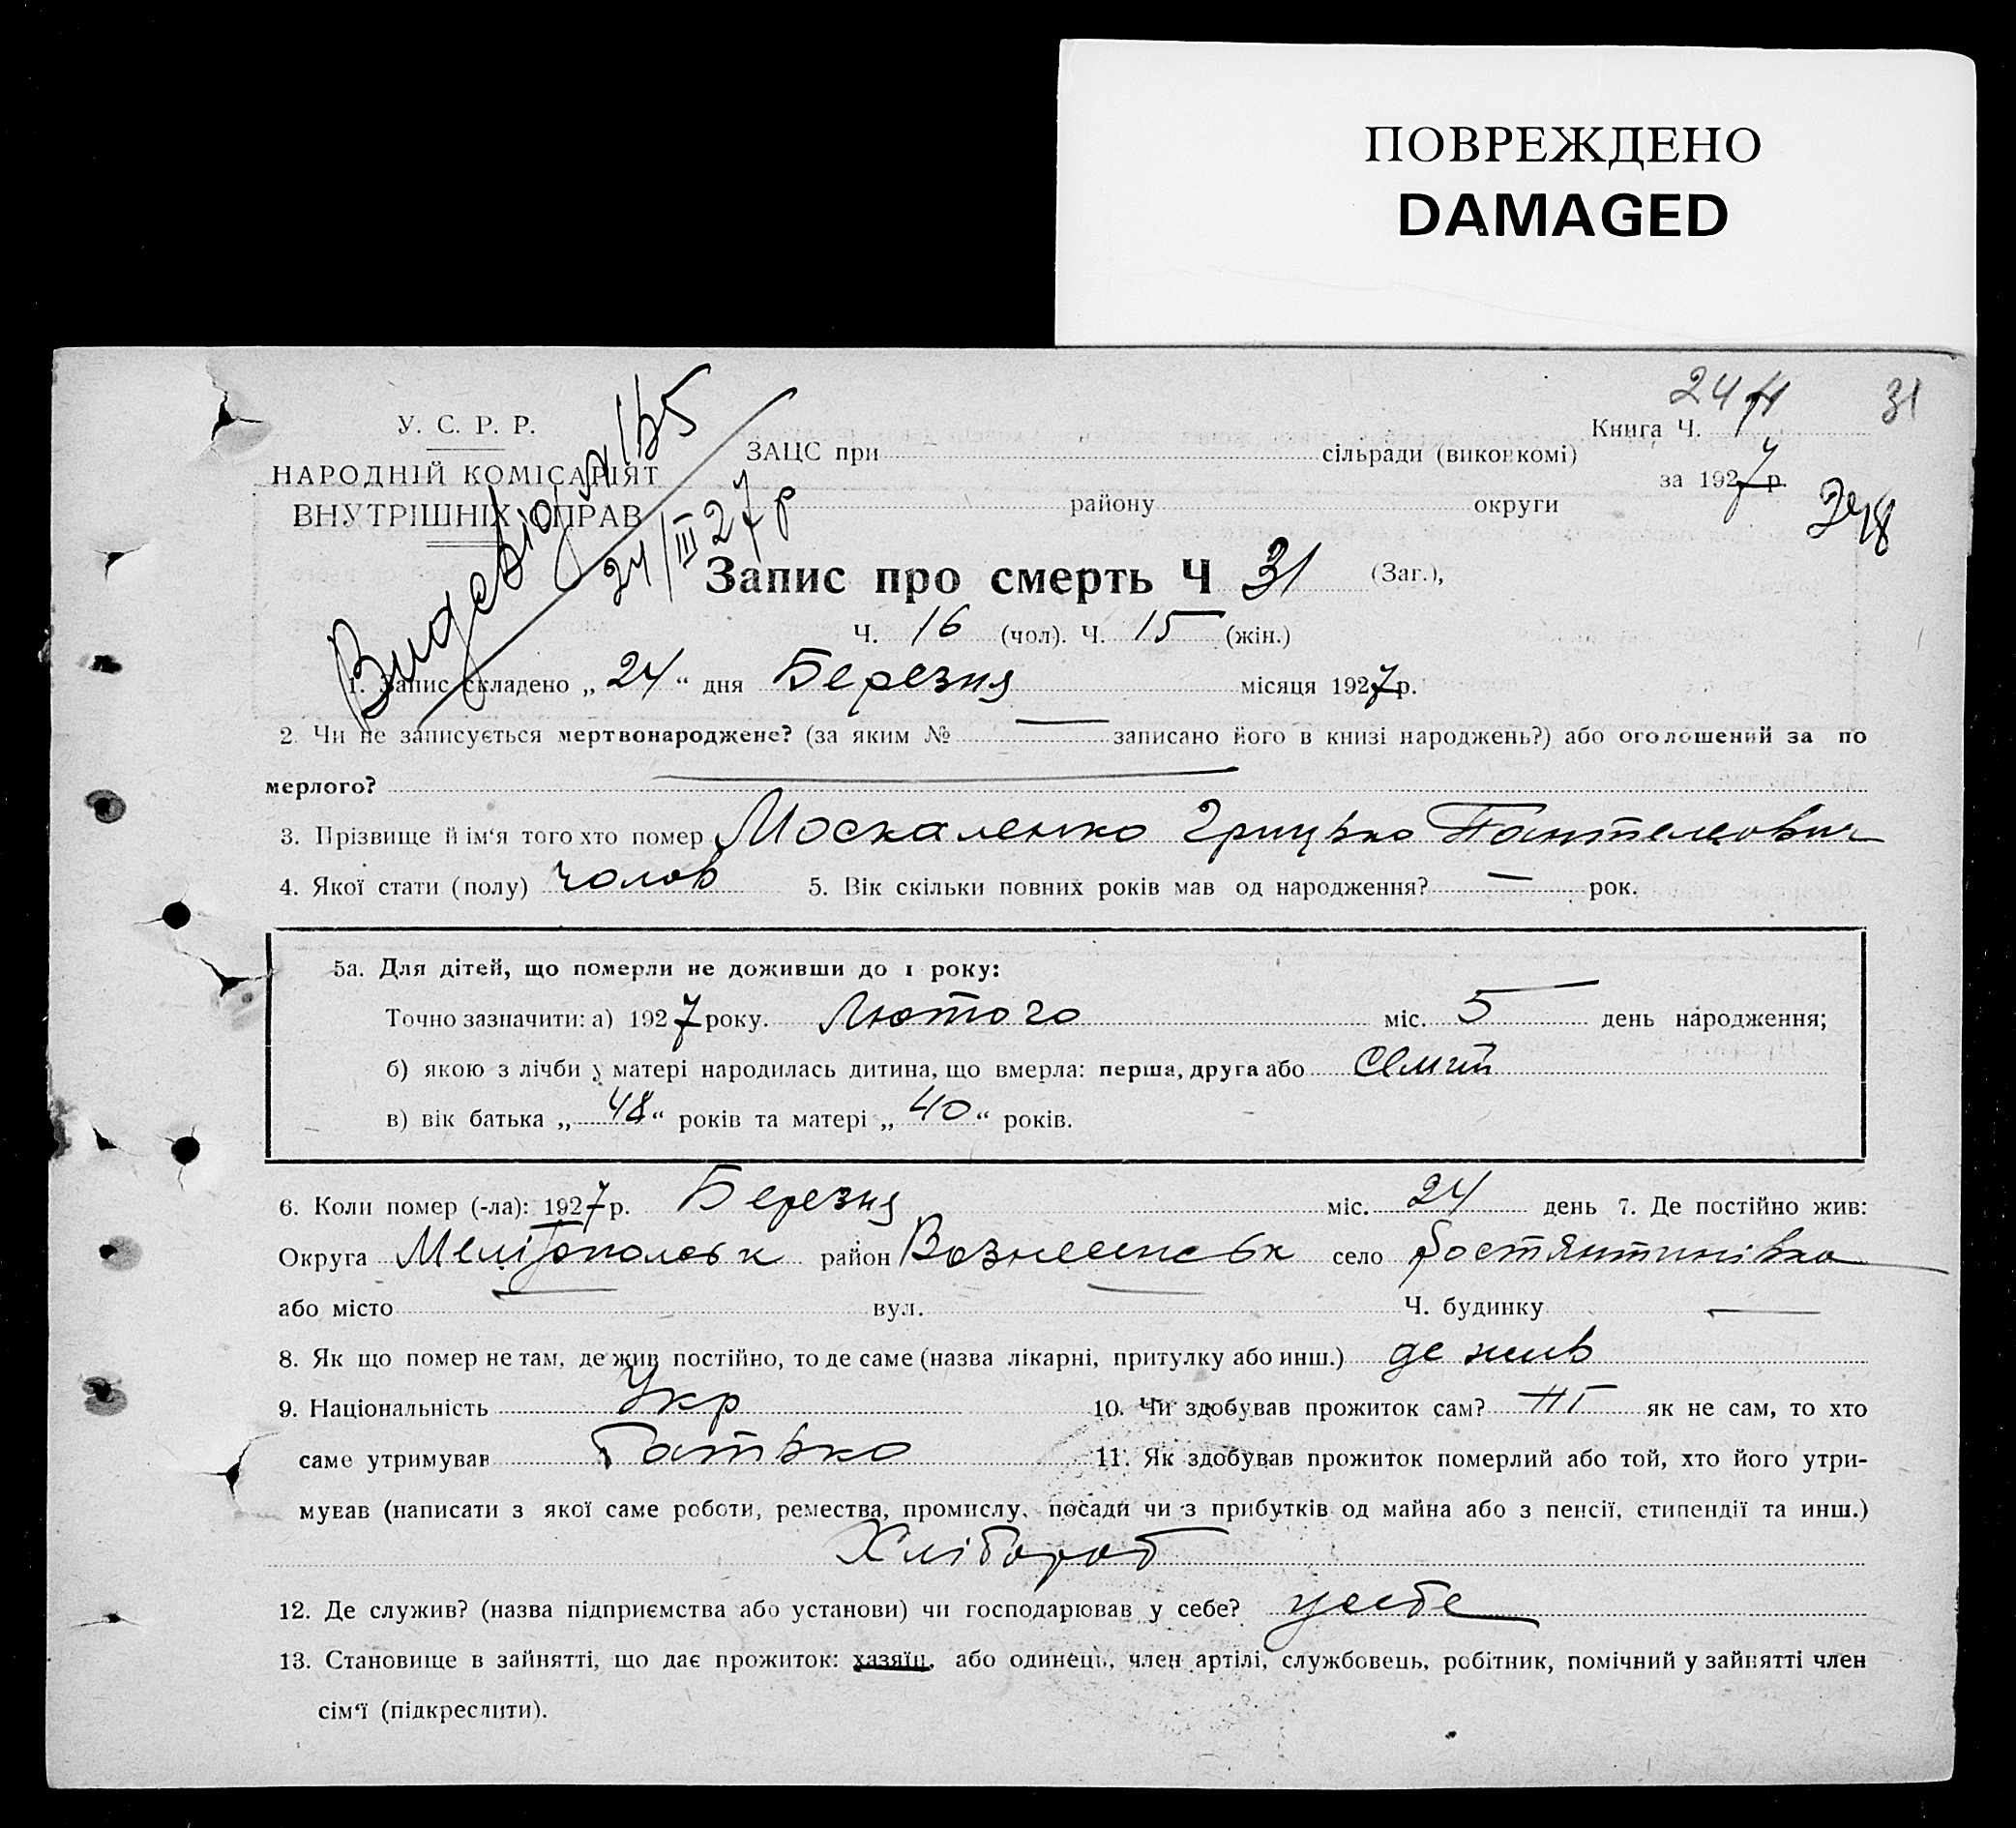 ПОВРЕЖДЕНО
DAMAGED
244 31
У. С. Р. Р.
НАРОДНІЙ КОМІСАРІЯТ
ВНУТРІШНІХ СПРАВ
24/III 27 р
ЗАЦС при сільради (виконкомі)
району округи
Книга Ч.
за 1927 р.
248
Запис про смерть Ч 31 (Заг.),
Ч. 16 (чол). Ч. 15 (жін.)
1. Запис складено „24“ дня Березня місяця 1927 р.
2. Чи не записується мертвонароджене? (за яким № — записано його в книзі народжень?) або оголошений за по
мерлого? —
3. Прізвище й ім‘я того хто помер Москаленко Грицько Пантелеович
4. Якої стати (полу) чолов 5. Вік скільки повних років мав од народження? — рок.
5а. Для дітей, що померли не доживши до 1 року:
Точно зазначити: а) 1927 року. Лютого міс. 5 день народження;
б) якою з лічби у матері народилась дитина, що вмерла: перша, друга або семий
в) вік батька „48“ років та матері „40“ років.
6. Коли помер (-ла): 1927 р. Березня міс. 24 день 7. Де постійно жив:
Округа Мелітопольськ район Вознесенськ село Костянтинівка
або місто — вул. — Ч. будинку —
8. Як що помер не там, де жив постійно, то де саме (назва лікарні, притулку або инш.) де жив
9. Національність Укр 10. Чи здобував прожиток сам? ні як не сам, то хто
саме утримував батько 11. Як здобував прожиток померлий або той, хто його утри-
мував (написати з якої саме роботи, ремества, промислу, посади чи з прибутків од майна або з пенсії, стипендії та инш.)
Хлібороб
12. Де служив? (назва підприємства або установи) чи господарював у себе? у себе
13. Становище в зайнятті, що дає прожиток: хазяїн, або одинець, член артілі, службовець, робітник, помічний у зайнятті член
сім‘ї (підкреслити).